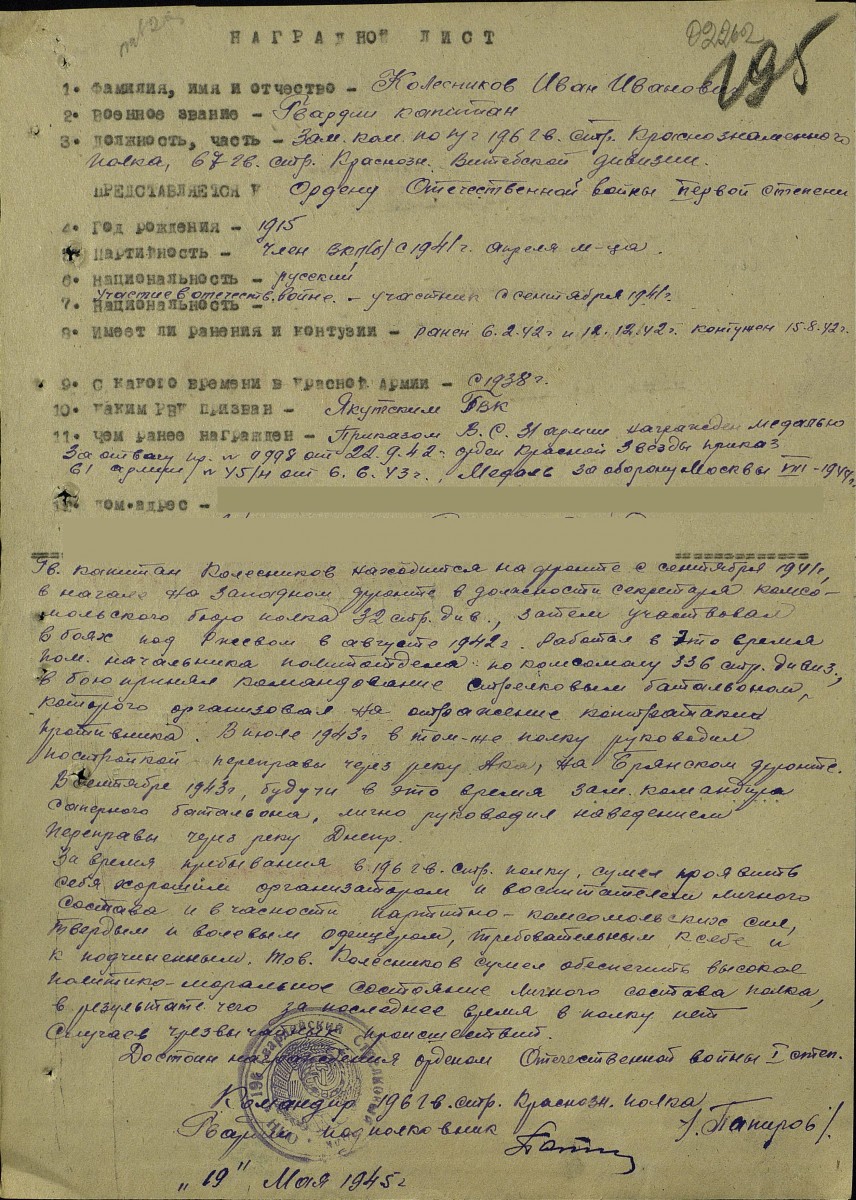 02262
195
НАГРАДНОЙ ЛИСТ
1. Фамилия, имя и отчество - Колесников Иван Иванович
2. Военное звание - Гвардии капитан
3. Должность, часть - Зам. ком. по п/ч 196 гв. стр. Краснознаменного
полка, 67 гв. стр. Краснозн. Витебской дивизии.
ПРЕДСТАВЛЯЕТСЯ К Ордену Отечественной войны первой степени
4. Год рождения - 1915
5. Партийность - Член ВКП(б) с 1941 г. апреля м-ца.
6. Национальность - русский
Участие в отечеств. войне. - участник с сентября 1941 г.
7. Национальность -
8. Имеет ли ранения и контузии - ранен 6.2.42 г. и 12.12.42 г. контужен 15.8.42 г.
9. С какого времени в Красной Армии - с 1938 г.
10. Каким РВК призван - Якутским ГВК
11. Чем ранее награжден - Приказом В.С. 31 армии награжден медалью
За отвагу пр. № 0998 от 22.9.42 г. орден Красной Звезды приказ
61 армии № 45/н от 6.6.43 г., Медаль За оборону Москвы VIII-1944 г.
Дом. адрес -
Гв. капитан Колесников находится на фронте с сентября 1941 г,
в начале на Западном фронте в должности секретаря комсо-
мольского бюро полка 32 стр. див., затем участвовал
в боях под Ржевом в августе 1942 г. Работал в это время
пом. начальника политотдела по комсомолу 336 стр. дивиз.,
в бою принял командование стрелковым батальоном,
которого организовал на отражение контратаки
противника. В июле 1943 г в том-же полку руководил
постройкой переправы через реку Ака, на Брянском фронте.
В сентябре 1943 г, будучи в это время зам. командира
саперного батальона, лично руководил наведением
переправы через реку Днепр.
За время пребывания в 196 гв. стр. полку, сумел проявить
себя хорошим организатором и воспитателем личного
состава и в часности партийно-комсомольских сил,
твердым и волевым офицером, требовательным к себе и
к подчиненным. Тов. Колесников сумел обеспечить высокое
политико-моральное состояние личного состава полка,
в результате чего за последнее время в полку нет
случаев чрезвычайных происшествий.
Достоин награждения орденом Отечественной войны I степ.
Командир 196 гв. стр. Краснозн. полка
Гвардии подполковник /Папиров/.
"19" Мая 1945 г